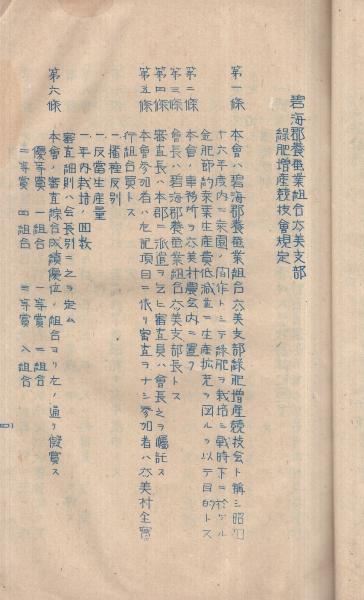 碧海郡養蚕業組合六美支部
緑肥増産競技会規定
第一條 本會ハ碧海郡養蚕業組合六美支部緑肥増産競技会ト稱シ昭和
十六年度内ニ桑園ノ間作トシテ緑肥ヲ栽培シ戰時下ニ於ケル
金肥節約桑葉生産費低減並ニ生産拡充ヲ図ルヲ以テ目的トス
第二條 本會ノ事務所ヲ六美村農会内ニ置ク
第三條 會長ハ碧海郡養蚕業組合六美支部長トス
第四條 審査長ハ本郡ニ派遣ヲ乞ヒ審査員ハ會長之ヲ囑託ス
第五條 本會参加者ハ左記項目ニ依リ審査ヲナシ参加者ハ六美村全實
行組合員トス
一、播種反別
一、反當生産量
一、年内栽培ノ回数
審査細則ハ会長別ニ之ヲ定ム
第六條 本會ノ審査綜合成績優位ノ組合ヨリ左ノ通リ授賞ス
優等賞 一組合 一等賞 二組合
二等賞 四組合 三等賞 八組合